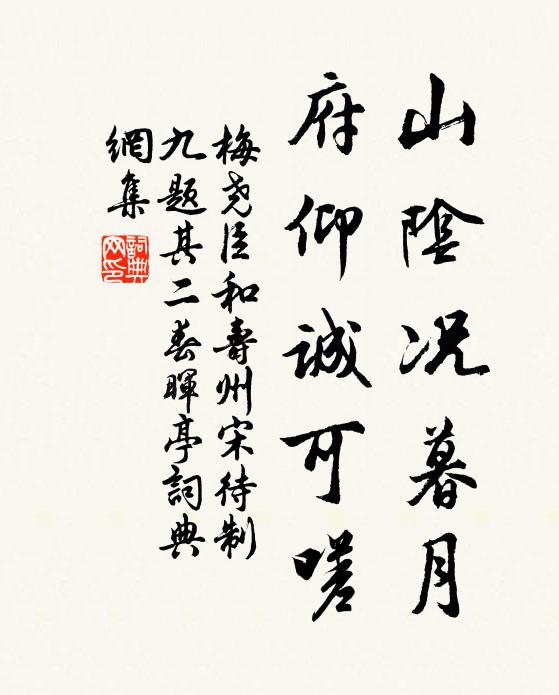 山陰况暮月
府仰誠可嗟
梅堯臣和壽州宋待制
九題其二春暉亭詞典
網集
詞典網印